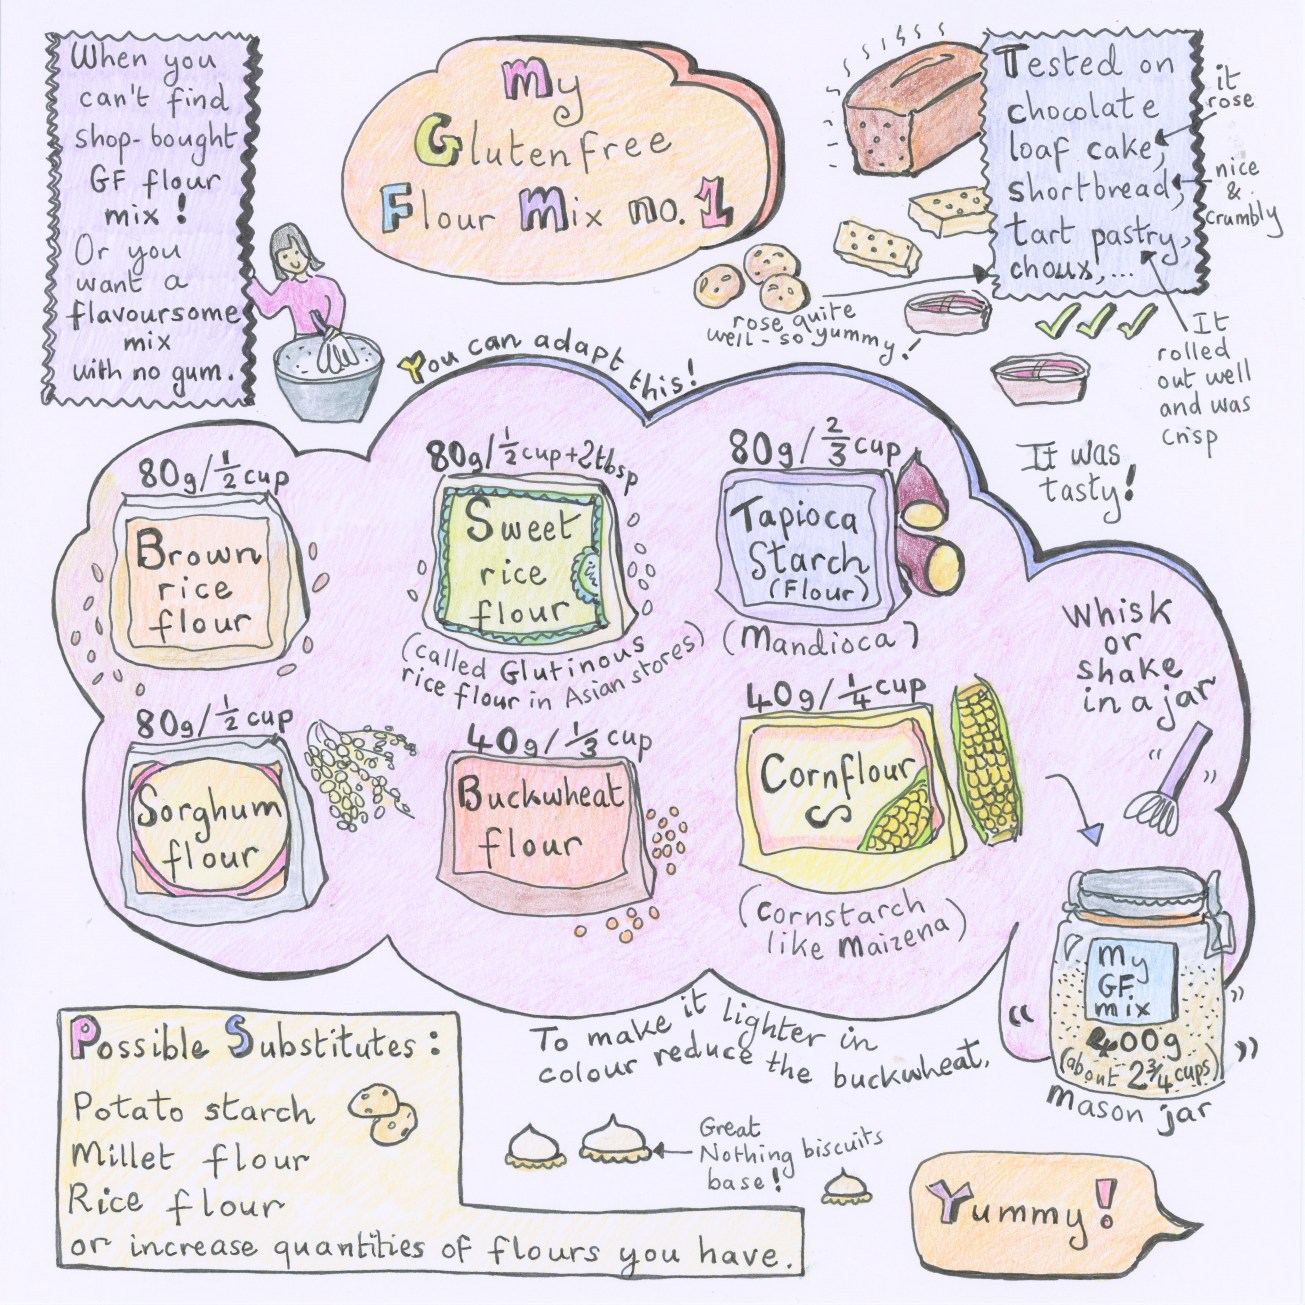 When you
can't find
shop-bought
GF flour
mix!
Or you
want a
flavoursome
mix
with no gum.
My
Glutenfree
Flour Mix no. 1
Tested on
chocolate
loaf cake,
shortbread,
tart pastry,
choux,...
it
rose
nice
&
crumbly
rose quite
well - so yummy!
It
rolled
out well
and was
crisp
It was
tasty!
You can adapt this!
80g/½ cup
Brown
rice
flour
80g/½ cup + 2tbsp
Sweet
rice
flour
(called Glutinous
rice flour in Asian stores)
80g/⅔ cup
Tapioca
Starch
(Flour)
(Mandioca)
80g/½ cup
Sorghum
flour
40g/⅓ cup
Buckwheat
flour
40g/¼ cup
Cornflour
(Cornstarch
like Maizena)
Whisk
or
shake
in a jar
My
GF
mix
400g
(about 2¾ cups)
Mason jar
To make it lighter in
colour reduce the buckwheat.
Possible Substitutes:
Potato starch
Millet flour
Rice flour
or increase quantities of flours you have.
Great
Nothing biscuits
base!
Yummy!